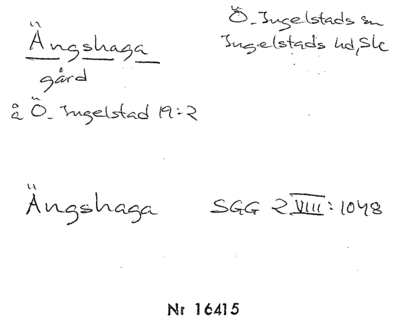 Ängshaga
gård
å Ö. Ingelstad 19:2
Ö. Ingelstads sn
Ingelstads hd, Sk
Ängshaga SGG 2 VIII:1048
Nr 16415